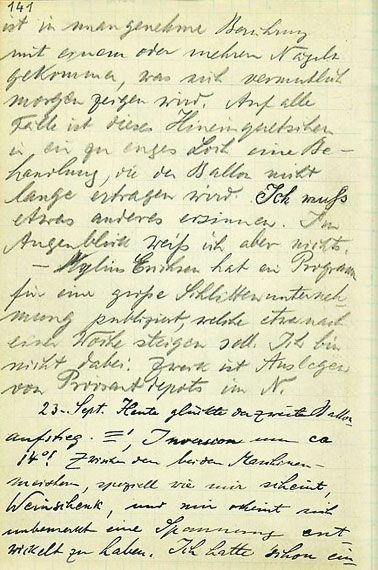 141
ist in unangenehme Berührung
mit einem oder mehren Nägeln
gekommen, was sich vermutlich
morgen zeigen wird. Auf alle
Fälle ist dieses Hineinquetschen
in ein zu enges Loch eine Be-
handlung, die der Ballon nicht
lange ertragen wird. Ich muß
etwas anderes ersinnen. Im
Augenblick weiß ich aber nichts.
– Mylius Erichsen hat ein Programm
für eine große Schlittenunterneh-
mung publiziert, welche etwa nach
einer Woche steigen soll. Ich bin
nicht dabei. Zweck ist Auslegen
von Proviantdepots im N.
23. Sept. Heute glückte der zweite Ballon-
aufstieg. Inversion um ca
14°! Zwischen den beiden Maschinen-
meistern, speziell wie mir scheint,
Weinschenk, und mir scheint sich
unbemerkt eine Spannung ent-
wickelt zu haben. Ich hatte schon ein-